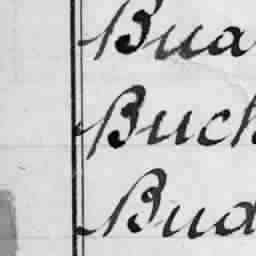 Bua
Buch
Bud